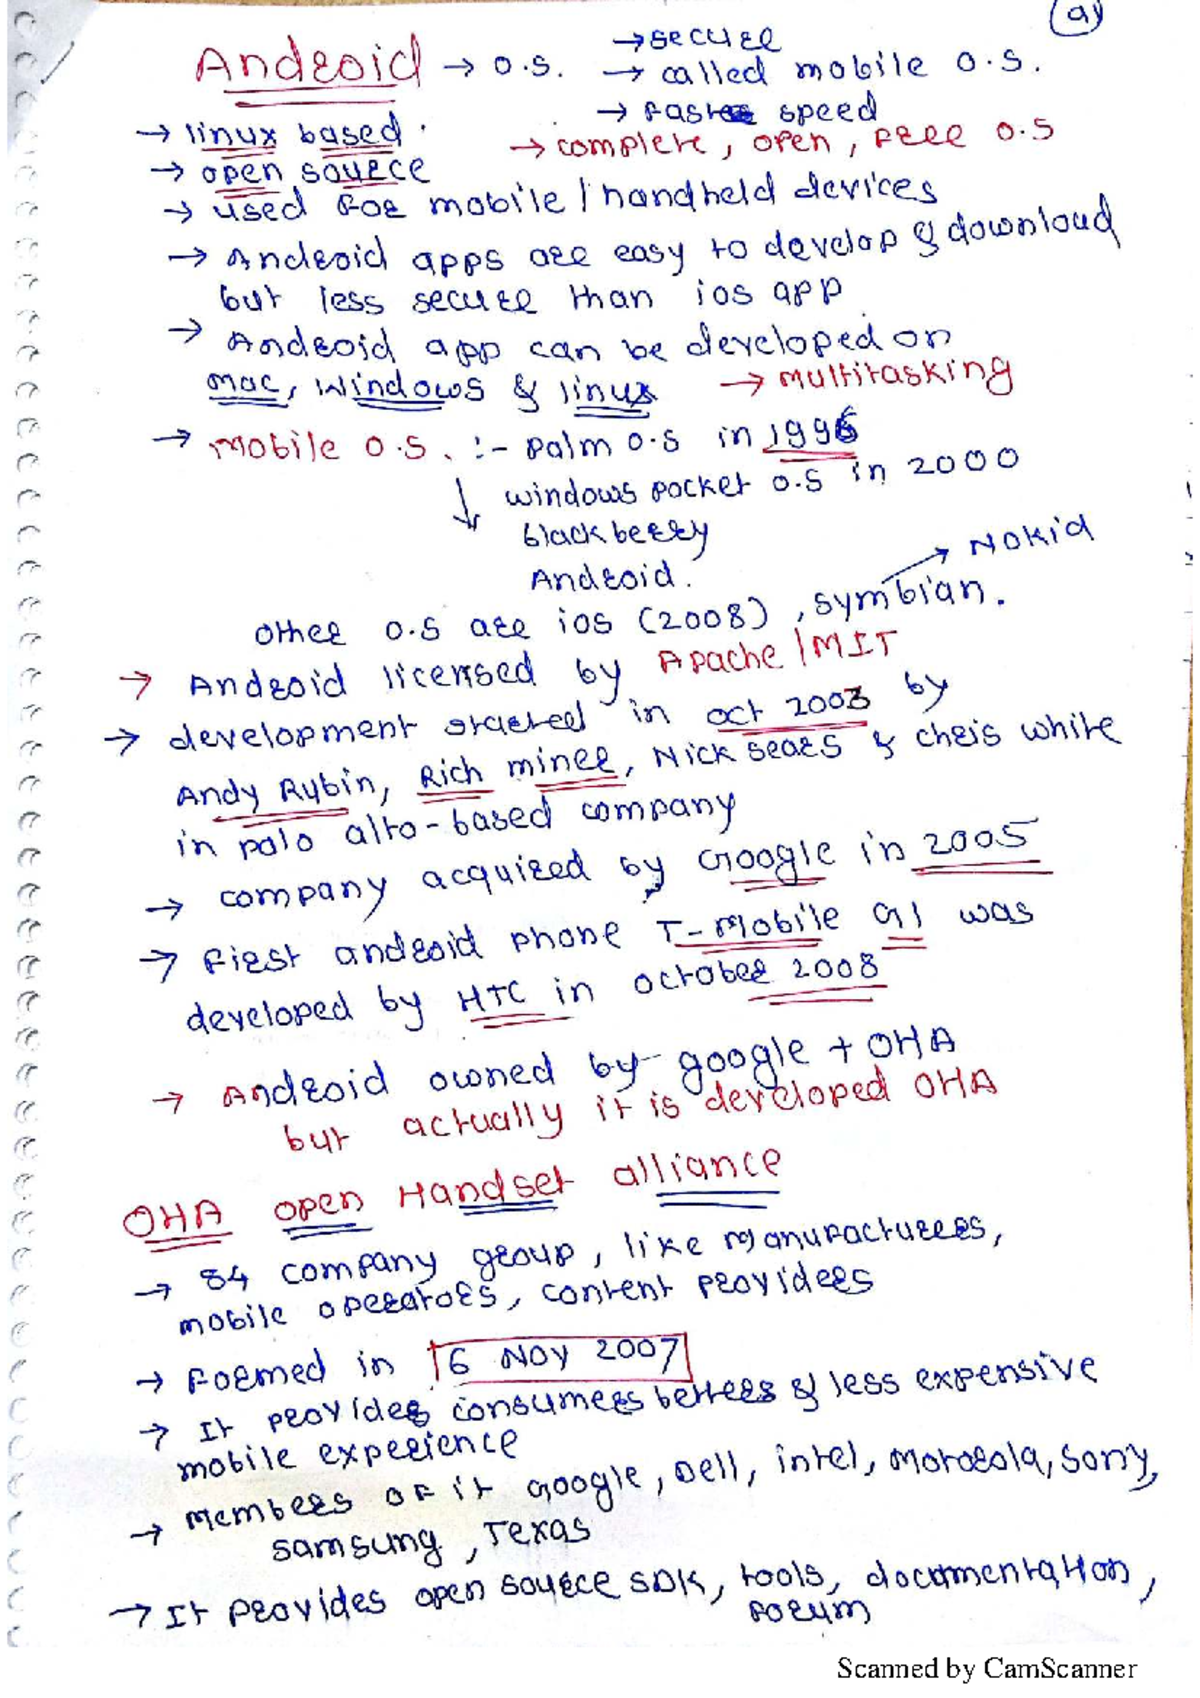 a1
Android → O.S. → secure
→ called mobile O.S.
→ linux based. → faster speed
→ open source → complete, open, free O.S
→ used for mobile / handheld devices
→ Android apps are easy to develop & download
but less secure than ios app
→ Android app can be developed on
mac, windows & linux → Multitasking
→ Mobile O.S. :- palm O.S in 1996
↓ windows pocket O.S in 2000
blackberry
Android. → Nokia
other O.S are ios (2008), symbian.
→ Android licensed by Apache / MIT
→ development started in oct 2003 by
Andy Rubin, Rich miner, Nick sears & chris white
in palo alto-based company
→ company acquired by Google in 2005
→ first android phone T-Mobile G1 was
developed by HTC in october 2008
→ Android owned by google + OHA
but actually it is developed OHA
OHA open Handset alliance
→ 84 company group, like manufacturers,
mobile operators, content providers
→ formed in 6 Nov 2007
→ It provides consumers betters & less expensive
mobile experience
→ members of it Google, Dell, intel, Motorola, Sony,
samsung, Texas
→ It provides open source SDK, tools, documentation,
forum
Scanned by CamScanner